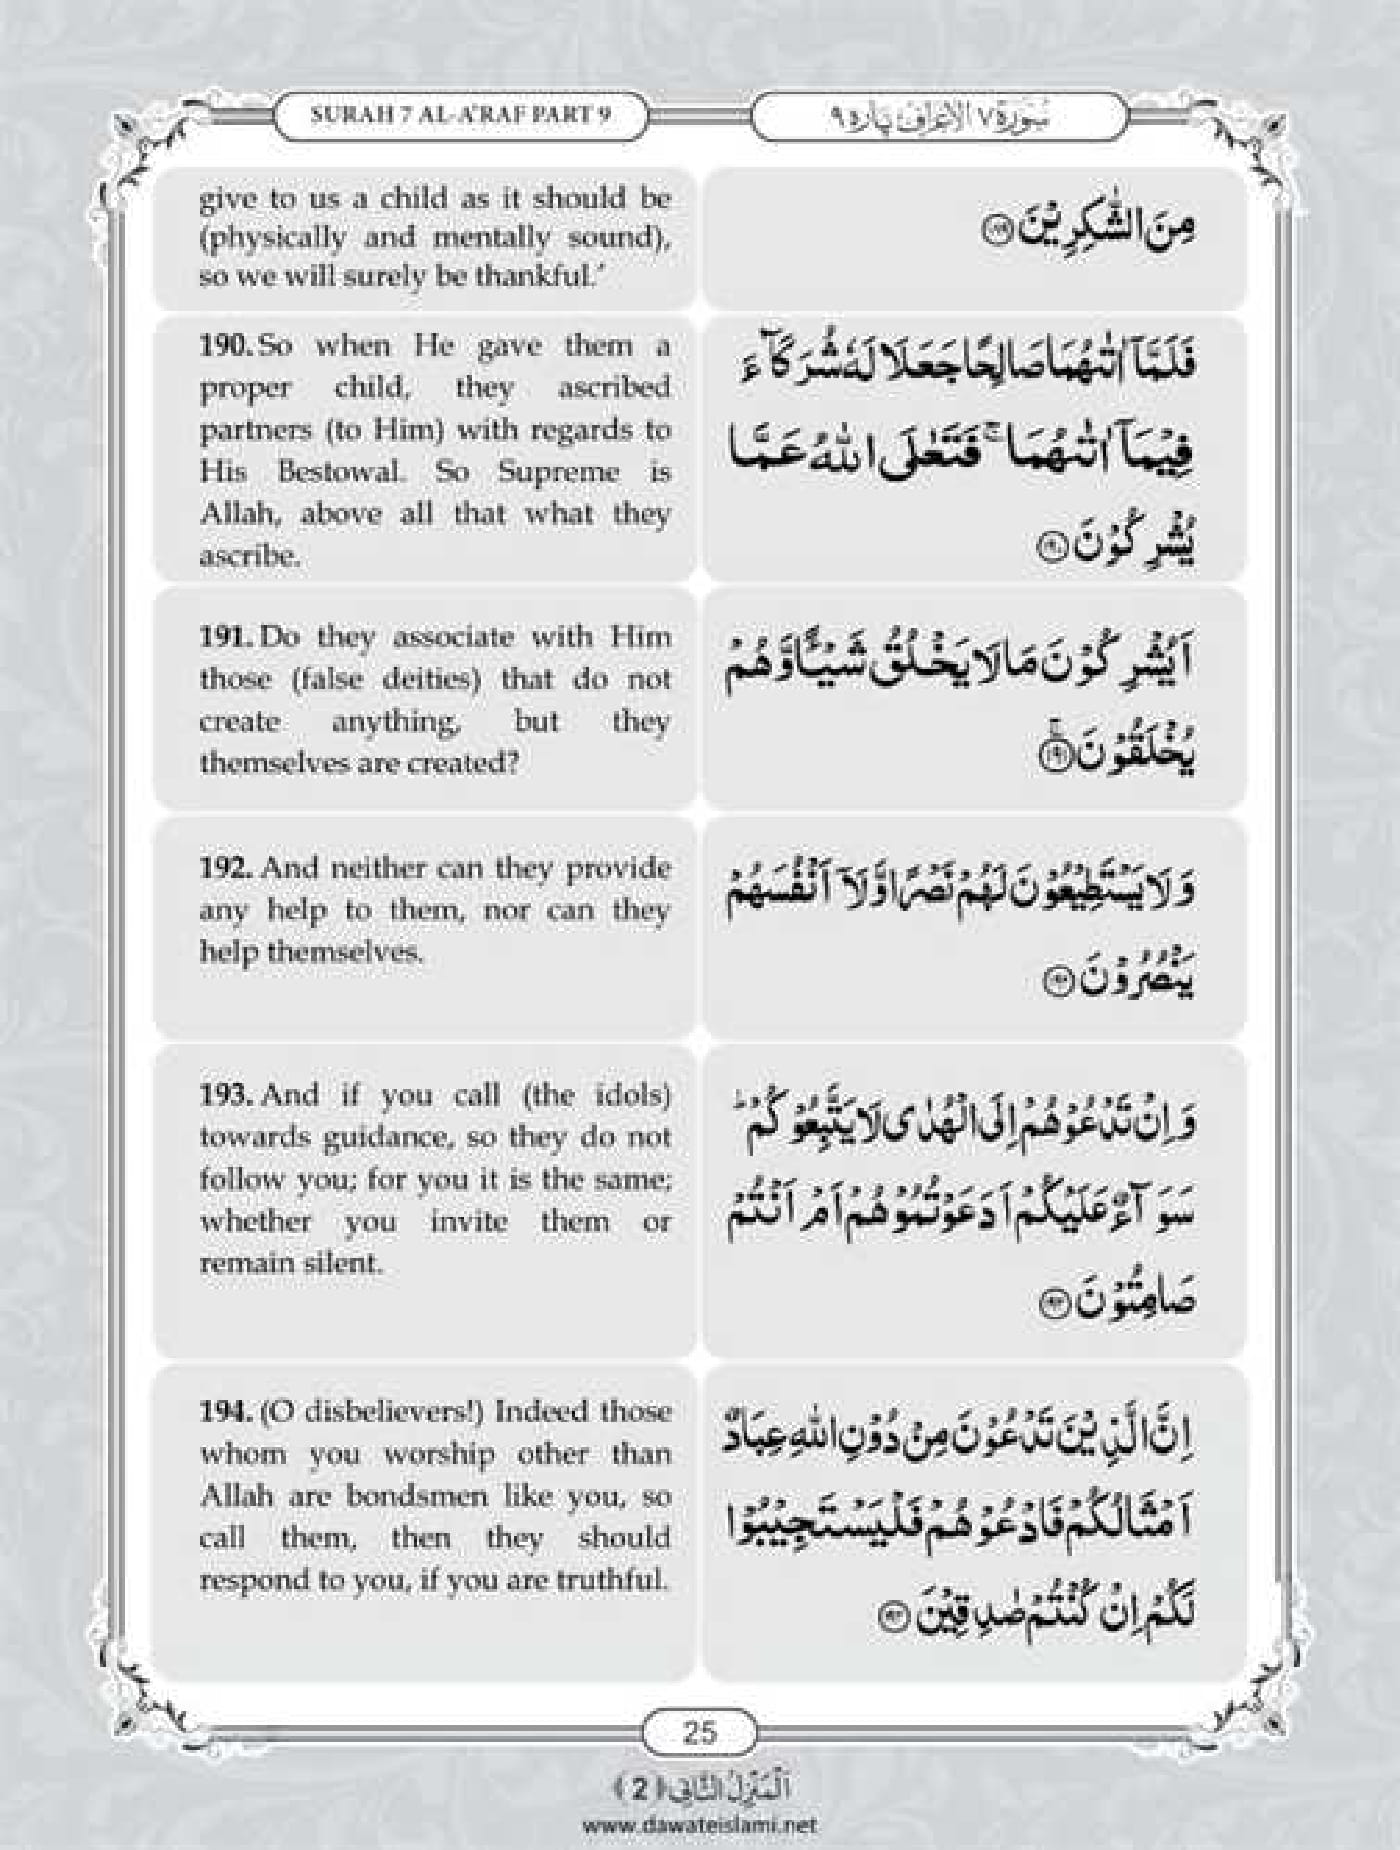 SURAH 7 AL-A'RAF PART 9
سُوْرَةُ ٧ الْاَعْرَاف پارہ ٩
give to us a child as it should be
(physically and mentally sound),
so we will surely be thankful.’
مِنَ الشّٰكِرِيْنَ ﴿١٨٩﴾
190. So when He gave them a
proper child, they ascribed
partners (to Him) with regards to
His Bestowal. So Supreme is
Allah, above all that what they
ascribe.
فَلَمَّاۤ اٰتٰىهُمَا صَالِحًا جَعَلَا لَهٗ شُرَكَآءَ
فِيْمَاۤ اٰتٰىهُمَا ۚ فَتَعٰلَى اللّٰهُ عَمَّا
يُشْرِكُوْنَ ﴿١٩٠﴾
191. Do they associate with Him
those (false deities) that do not
create anything, but they
themselves are created?
اَيُشْرِكُوْنَ مَا لَا يَخْلُقُ شَيْـًٔا وَّهُمْ
يُخْلَقُوْنَ ﴿١٩١﴾
192. And neither can they provide
any help to them, nor can they
help themselves.
وَلَا يَسْتَطِيْعُوْنَ لَهُمْ نَصْرًا وَّلَاۤ اَنْفُسَهُمْ
يَنْصُرُوْنَ ﴿١٩٢﴾
193. And if you call (the idols)
towards guidance, so they do not
follow you; for you it is the same;
whether you invite them or
remain silent.
وَاِنْ تَدْعُوْهُمْ اِلَى الْهُدٰى لَا يَتَّبِعُوْكُمْ ؕ
سَوَآءٌ عَلَيْكُمْ اَدَعَوْتُمُوْهُمْ اَمْ اَنْتُمْ
صَامِتُوْنَ ﴿١٩٣﴾
194. (O disbelievers!) Indeed those
whom you worship other than
Allah are bondsmen like you, so
call them, then they should
respond to you, if you are truthful.
اِنَّ الَّذِيْنَ تَدْعُوْنَ مِنْ دُوْنِ اللّٰهِ عِبَادٌ
اَمْثَالُكُمْ فَادْعُوْهُمْ فَلْيَسْتَجِيْبُوْا
لَكُمْ اِنْ كُنْتُمْ صٰدِقِيْنَ ﴿١٩٤﴾
25
اَلْمَنْزِلُ الثَّانِي ﴿2﴾
www.dawateislami.net